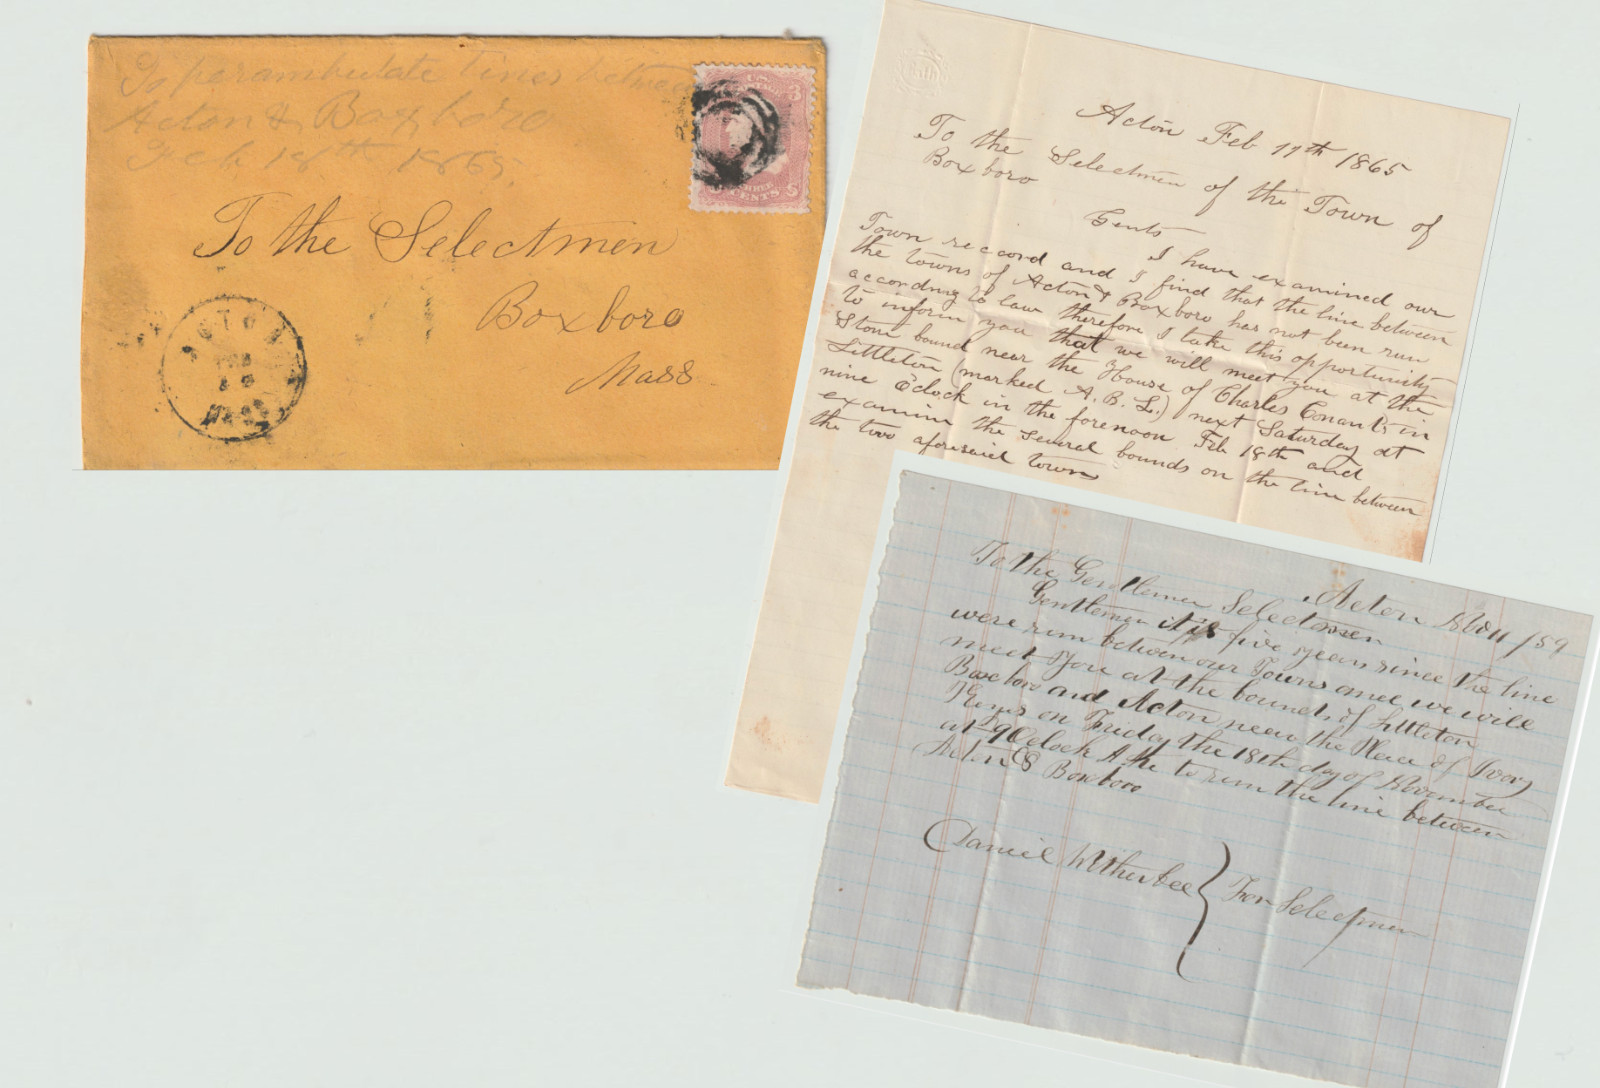 To perambulate lines between
Acton & Boxboro
Feb 18th 1865.
U.S.
POSTAGE
3
THREE
CENTS
To the Selectmen
Boxboro
Mass
ACTON
MASS
Bath
Acton Feb 11th 1865
To the Selectmen of the Town of
Boxboro
Gents
I have examined our
Town reccord and I find that the line between
the towns of Acton & Boxboro has not been run
according to law therefore I take this opportunity
to inform you that we will meet you at the
Stone bound near the House of Charles Conants in
Littleton (marked A. B. L.) next Saturday at
nine O'clock in the forenoon Feb 18th and
examin the several bounds on the line between
the two aforesaid towns
Acton Nov 11 /59
To the Gentlemen Selectmen
Gentlemen it is five years since the line
were run between our Towns and we will
meet you at the bounds of Littleton
Boxboro and Acton near the Place of Ivory
Keyes on Friday the 18th day of November
at 9 Oclock A M to run the line between
Acton & Boxboro
Daniel Wetherbee } For Selectmen